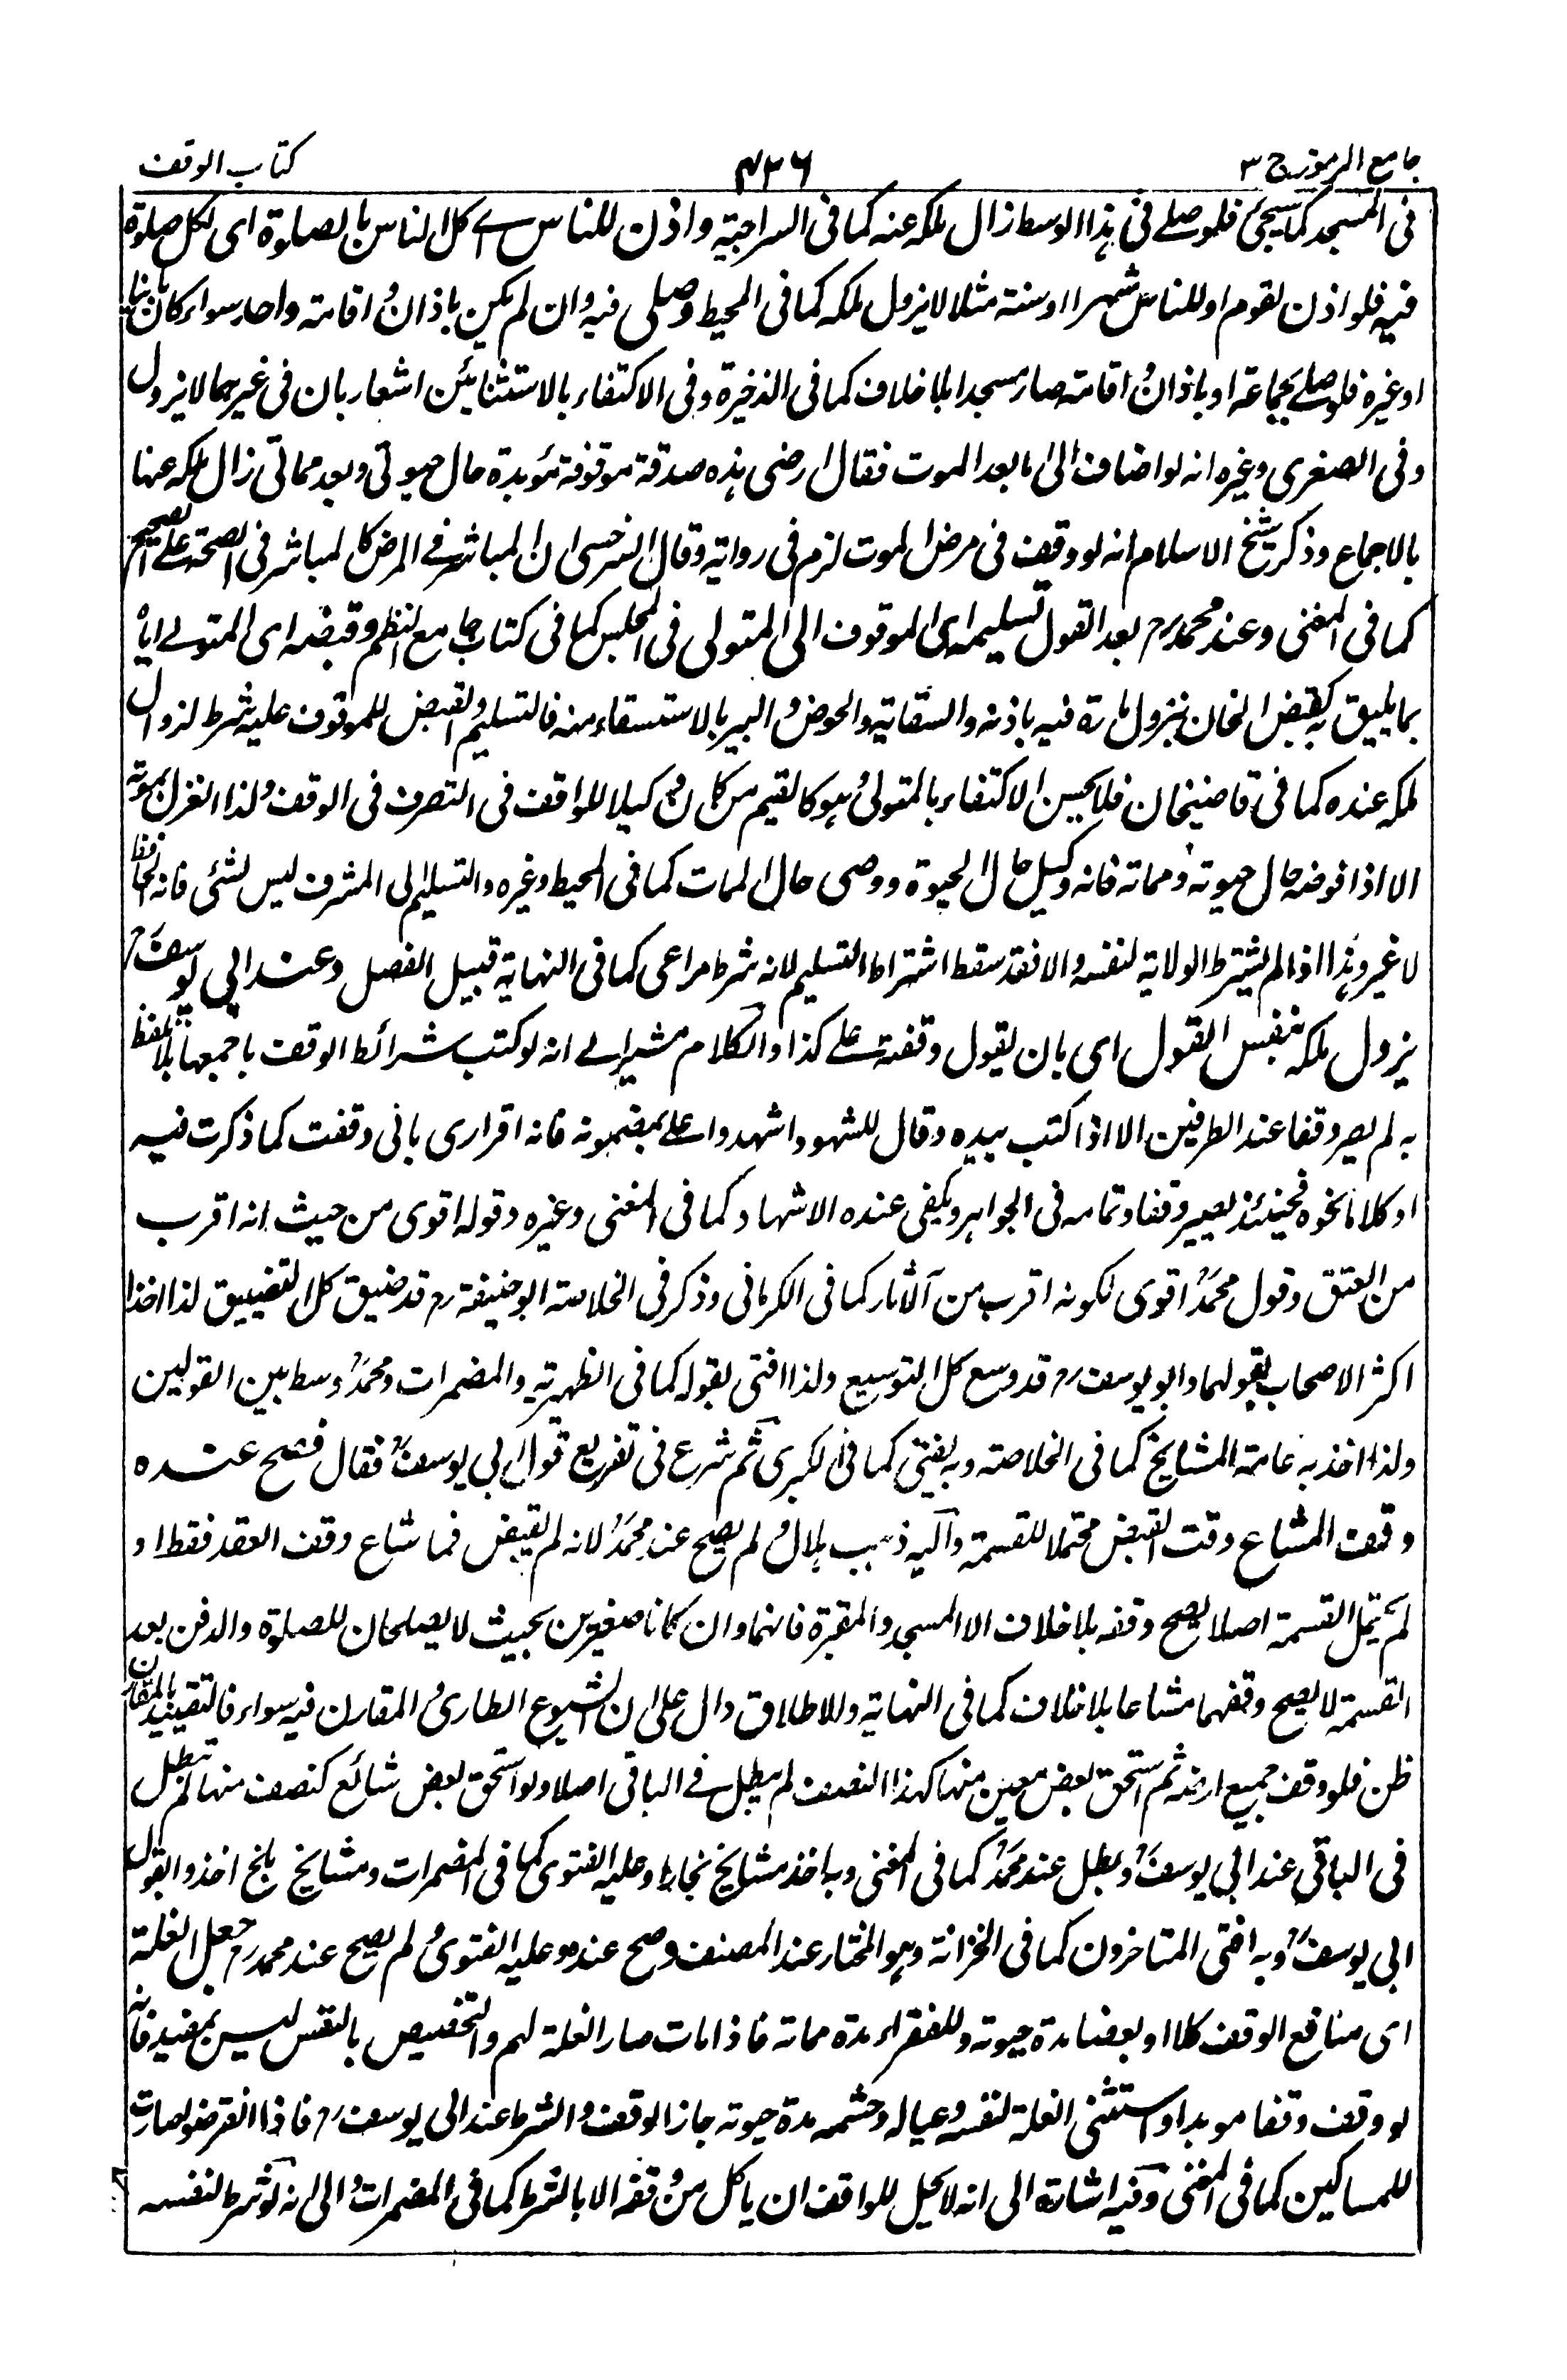 جامع الرموز ج ٣
٤٣٦
كتاب الوقف
فى المسجد كما سيجئ فلو صلے فى هذا الوسط زال ملكه عنه كما فى السراجية واذن للناس اے كل الناس بالصلوة اى لكل صلوة
فيه فلو اذن لقوم او للناس شهرا او سنة مثلا لا يزول ملكه كما فى المحيط وصلى فيه وان لم يكن باذان و اقامة واحد سواء كان بانيا
او غيره فلو صلے بجماعة او باذان و اقامة صار مسجدا بلا خلاف كما فى الذخيرة وفى الاكتفاء بالاستثنائين اشعار بان فى غيرهما لا يزول
وفى الصغرى وغيره انه لو اضاف الى ما بعد الموت فقال ارضى هذه صدقة موقوفة مؤبدة حال حيوتى وبعد مماتى زال ملكه عنها
بالاجماع وذكر شيخ الاسلام انه لو وقف فى مرض الموت لزم فى رواية وقال السرخسى ان المباشر فے المرض كالمباشر فى الصحة علے الصحيح
كما فى المغنى وعند محمد رح بعد القول تسليمه اى الموقوف الى المتولى فى المجلس كما فى كتاب جامع النظم وقبضه اى المتولے اياه
بما يليق به كقبض الخان بنزول مارة فيه باذنه والسقاية والحوض و البير بالاستسقاء منه فالتسليم و القبض للموقوف عليه شرط لزوال
ملكه عنده كما فى قاضيخان فلا يحسن الاكتفاء بالمتولى و هو كالقيم من كان وكيلا للواقف فى التصرف فى الوقف ولذا انعزل بموته
الا اذا فوضه حال حيوته و مماته فانه وكيل حال الحيوة ووصى حال الممات كما فى المحيط وغيره والتسليم الى المشرف ليس بشئ فانه الحافظ
لا غير وهذا اذا لم يشترط الولاية لنفسه والا فقد سقط اشتراط التسليم لانه شرط مراعى كما فى النهاية قبيل الفصل وعند ابى يوسف رح
يزول ملكه بنفس القول اى بان يقول وقفته علے كذا والكلام مشير الے انه لو كتب شرائط الوقف باجمعها بلا تلفظ
به لم يصر وقفا عند الطرفين الا اذا كتب بيده وقال للشهود اشهدوا علے بمضمونه فانه اقرارى بانى وقفت كما ذكرت فيه
او كلاما نحوه فحينئذ يصير وقفا وتمامه فى الجواهر ويكفى عنده الاشهاد كما فى المغنى وغيره وقوله اقوى من حيث انه اقرب
من العتق وقول محمد رح اقوى لكونه اقرب من الآثار كما فى الكرمانى وذكر فى الخلاصة ابو حنيفة رح قد ضيق كل التضييق لذا اخذ
اكثر الاصحاب بقولهما وابو يوسف رح قد وسع كل التوسيع ولذا افتى بقوله كما فى الظهيرية والمضمرات ومحمد رح وسط بين القولين
ولذا اخذ به عامة المشايخ كما فى الخلاصة وبه يفتى كما فى الكبرى ثم شرع فى تفريع قول ابى يوسف رح فقال فصح عنده
وقف المشاع وقت القبض محتملا للقسمة واليه ذهب هلال و لم يصح عند محمد رح لانه لم يقبض فما شاع وقف العقد فقط او
لم يحتمل القسمة اصلا يصح وقفه بلا خلاف الا المسجد والمقبرة فانهما وان كانا صغيرين بحيث لا يصلحان للصلوة والدفن بعد
القسمة لا يصح وقفهما مشاعا بلا خلاف كما فى النهاية وللاطلاق دال على ان الشيوع الطارى و المقارن فيه سواء فالتقييد بالمقارن
ظن فلو وقف جميع ارضه ثم استحق بعض معين منها كهذا النصف لم يبطل فے الباقى اصلا ولو استحق بعض شائع كنصف منها لم يبطل
فى الباقى عند ابى يوسف رح و بطل عند محمد رح كما فى المغنى وبه اخذ مشايخ بخارا وعليه الفتوى كما فى المضمرات ومشايخ بلخ اخذوا بقول
ابى يوسف رح وبه افتى المتاخرون كما فى الخزانة وهو المختار عند المصنف وصح عنده وعليه الفتوى و لم يصح عند محمد رح جعل الغلة
اى منافع الوقف كلا او بعضا مدة حيوته وللفقراء مدة مماته فاذا مات صار الغلة لهم والتخصيص بالنفس ليس بمفيد فانه
لو وقف وقفا موبدا واستثنى الغلة لنفسه وعياله وحشمه مدة حيوته جاز الوقف و الشرط عند ابى يوسف رح فاذا انقرضوا صارت
للمساكين كما فى المغنى وفيه اشارة الى انه لا يحل للواقف ان ياكل من وقفه الا بالشرط كما فى المضمرات و الى انه لو شرط لنفسه